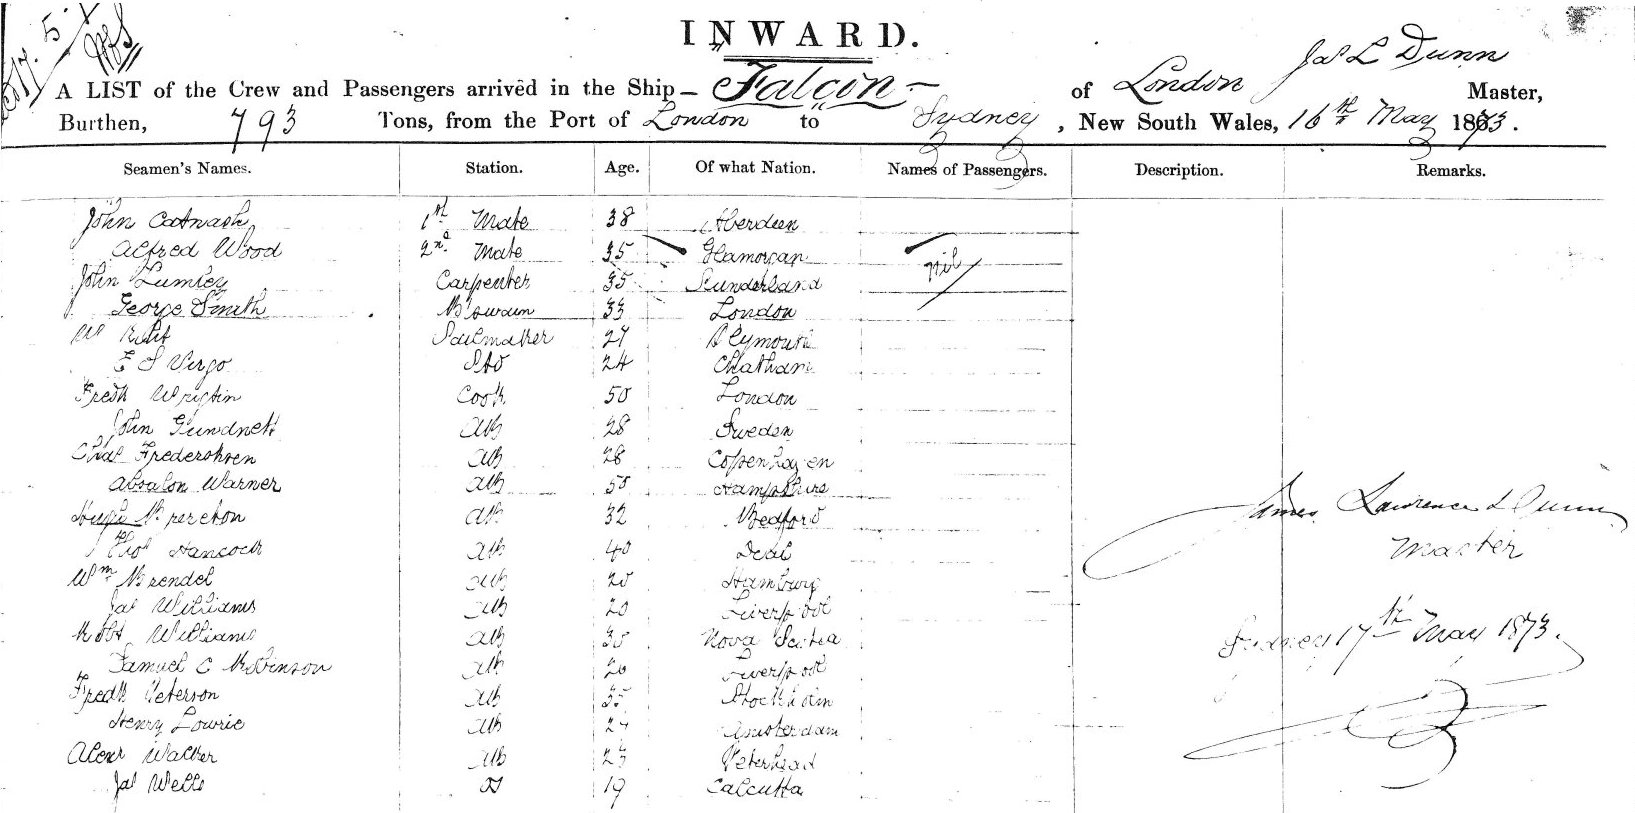 INWARD.
Jas L Dunn
A LIST of the Crew and Passengers arrived in the Ship - Falcon - of London Master,
Burthen, 793 Tons, from the Port of London to Sydney, New South Wales, 16th May 1873.
Seamen's Names. Station. Age. Of what Nation. Names of Passengers. Description. Remarks.
John Catnach 1st Mate 38 Aberdeen
Alfred Wood 2nd Mate 35 Glamorgan nil
John Lumley Carpenter 35 Sunderland
George Smith B'swain 33 London
Wm Sailmaker 27 Plymouth
E S Virgo Std 24 Chatham
Fredk Cook 50 London
John AB 28 Sweden
Chas AB 28 Copenhagen
Absalon Warner AB 55 Hampshire
Hugh Brereton AB 32 Bedford
Thos Hancock AB 40 Deal
Wm Brendel AB 20 Hamburg
Jas Williams AB 20 Liverpool
Robt Williams AB 35 Nova Scotia
Samuel C Robinson AB 20 Liverpool
Fredk Peterson AB 35 Stockholm
Henry Lowrie AB Amsterdam
Alexr Walker AB Peterhead
Jas Wells OS 19 Calcutta
James Lawrence Dunn
Master
Sydney 17th May 1873.